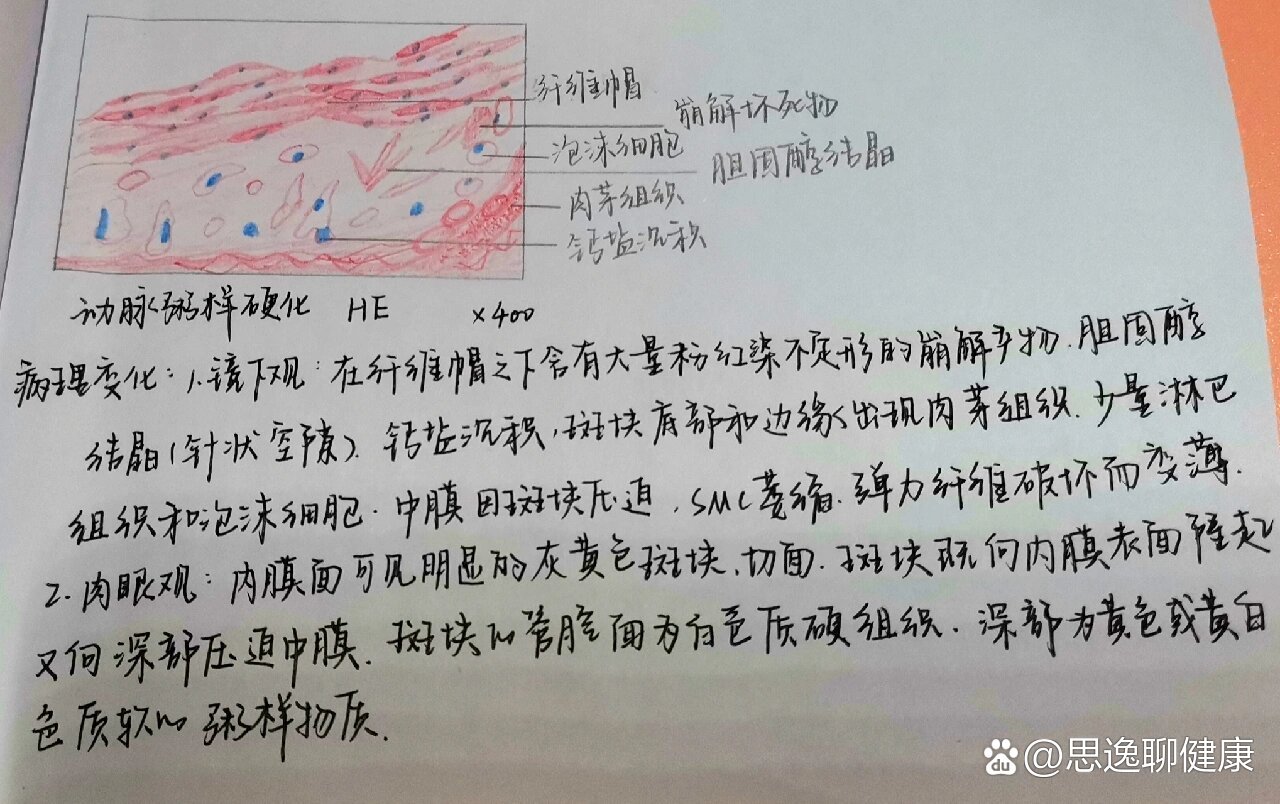 纤维帽
崩解坏死物
泡沫细胞
胆固醇结晶
肉芽组织
钙盐沉积
动脉粥样硬化 HE ×400
病理变化：1.镜下观：在纤维帽之下含有大量粉红染不定形的崩解产物、胆固醇
结晶(针状空隙)、钙盐沉积，斑块底部和边缘出现肉芽组织、少量淋巴
组织和泡沫细胞．中膜因斑块压迫、SMC萎缩、弹力纤维破坏而变薄．
2.肉眼观：内膜面可见明显的灰黄色斑块、切面．斑块既向内膜表面隆起
又向深部压迫中膜．斑块的管腔面为白色质硬组织．深部为黄色或黄白
色质软的粥样物质．
du @思逸聊健康